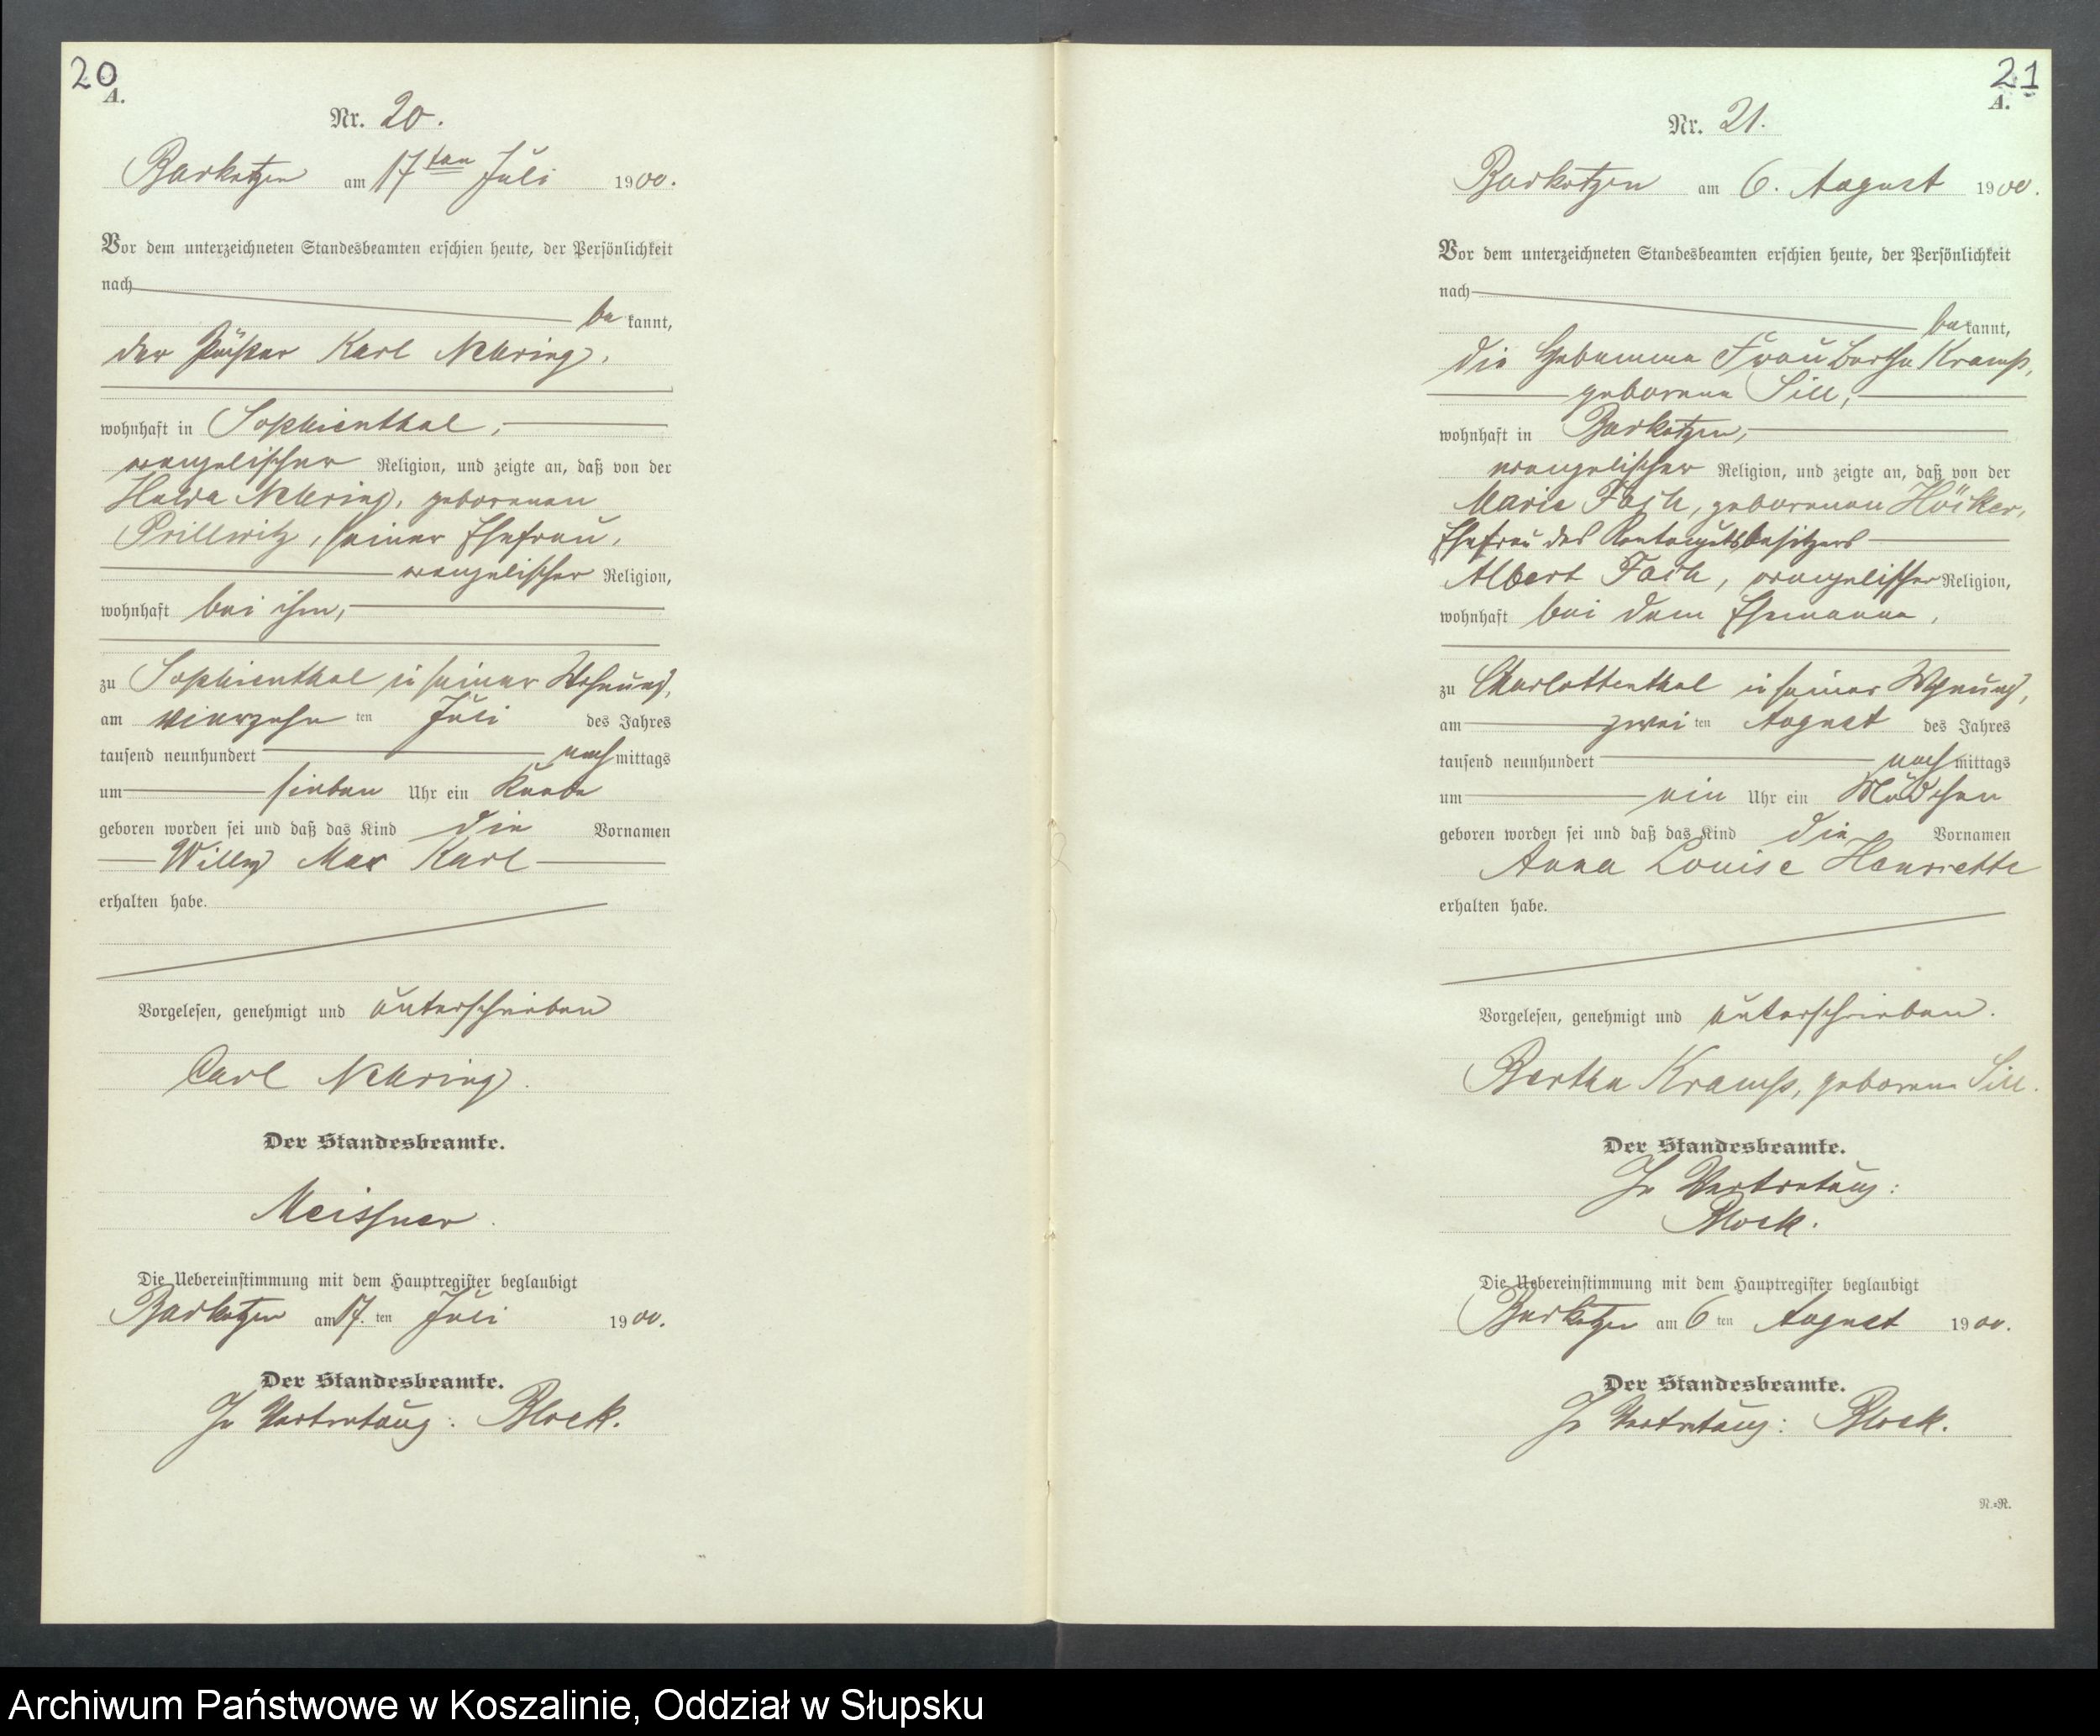 20
A.
Nr. 20.
Barkotzen am 17ten Juli 1900.
Vor dem unterzeichneten Standesbeamten erschien heute, der Persönlichkeit
nach
be kannt,
der Karl Nehring,
wohnhaft in Sophienthal,
evangelischer Religion, und zeigte an, daß von der
Hulda Nehring, geborenen
Prillwitz, seiner Ehefrau,
evangelischer Religion,
wohnhaft bei ihm,
zu Sophienthal in seiner Wohnung,
am vierzehn ten Juli des Jahres
tausend neunhundert nach mittags
um sieben Uhr ein Knabe
geboren worden sei und daß das Kind die Vornamen
Willy Max Karl
erhalten habe.
Vorgelesen, genehmigt und unterschrieben
Carl Nehring.
Der Standesbeamte.
Meissner.
Die Uebereinstimmung mit dem Hauptregister beglaubigt
Barkotzen am 17. ten Juli 1900.
Der Standesbeamte.
In Vertretung: Block.
21
A.
Nr. 21.
Barkotzen am 6. August 1900.
Vor dem unterzeichneten Standesbeamten erschien heute, der Persönlichkeit
nach
be kannt,
die Hebamme Frau Bertha Kramp,
geborene Sill,
wohnhaft in Barkotzen,
evangelischer Religion, und zeigte an, daß von der
Marie Fach, geborenen Höcker,
Ehefrau des Rentengutsbesitzers
Albert Fach, evangelischer Religion,
wohnhaft bei dem Ehemanne,
zu Charlottenthal in seiner Wohnung,
am zwei ten August des Jahres
tausend neunhundert nach mittags
um ein Uhr ein Mädchen
geboren worden sei und daß das Kind die Vornamen
Anna Louise Henriette
erhalten habe.
Vorgelesen, genehmigt und unterschrieben.
Bertha Kramp, geborene Sill.
Der Standesbeamte.
In Vertretung:
Block.
Die Uebereinstimmung mit dem Hauptregister beglaubigt
Barkotzen am 6 ten August 1900.
Der Standesbeamte.
In Vertretung: Block.
R.=R.
Archiwum Państwowe w Koszalinie, Oddział w Słupsku